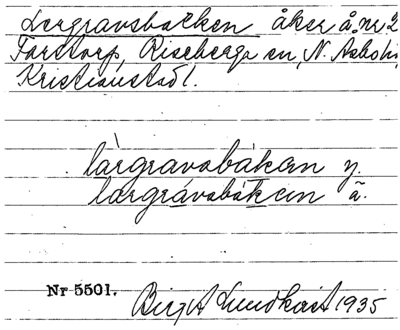 Lergravsbacken åker å nr 2
Färstorp, Riseberga sn, N. Åsbo hd,
Kristianstad l.
làrgravsbákan y.
largrávsbákan ä.
Nr 5501. Birgit Lundkvist 1935